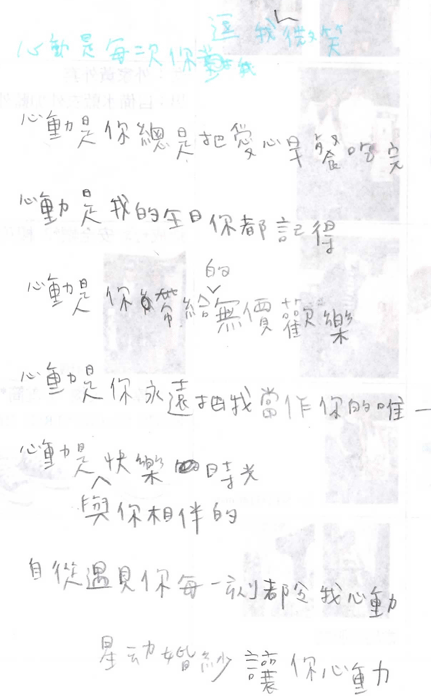 心動是每次你逗我微笑
心動是你總是把愛心早餐吃完
心動是我的生日你都記得
心動是你帶給的無價歡樂
心動是你永遠把我當作你的唯一
心動是與你相伴的快樂時光
自從遇見你每一刻都令我心動
星动婚紗讓你心動